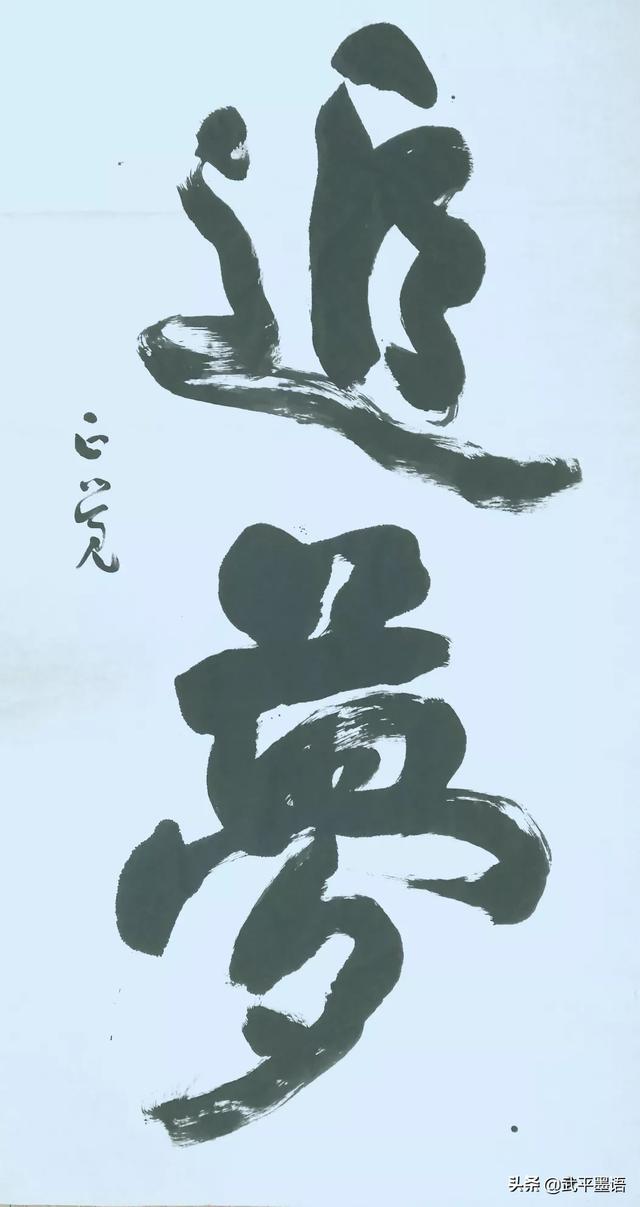 追夢
正觉
头条 @武平墨语